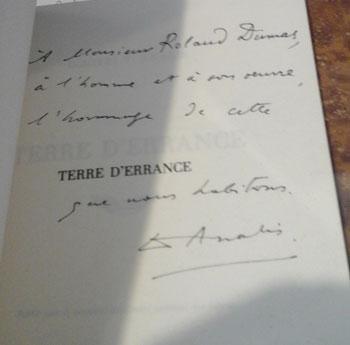 À Monsieur Roland Dumas,
à l'homme et à son oeuvre,
l'hommage de cette
TERRE D'ERRANCE
que nous habitons.